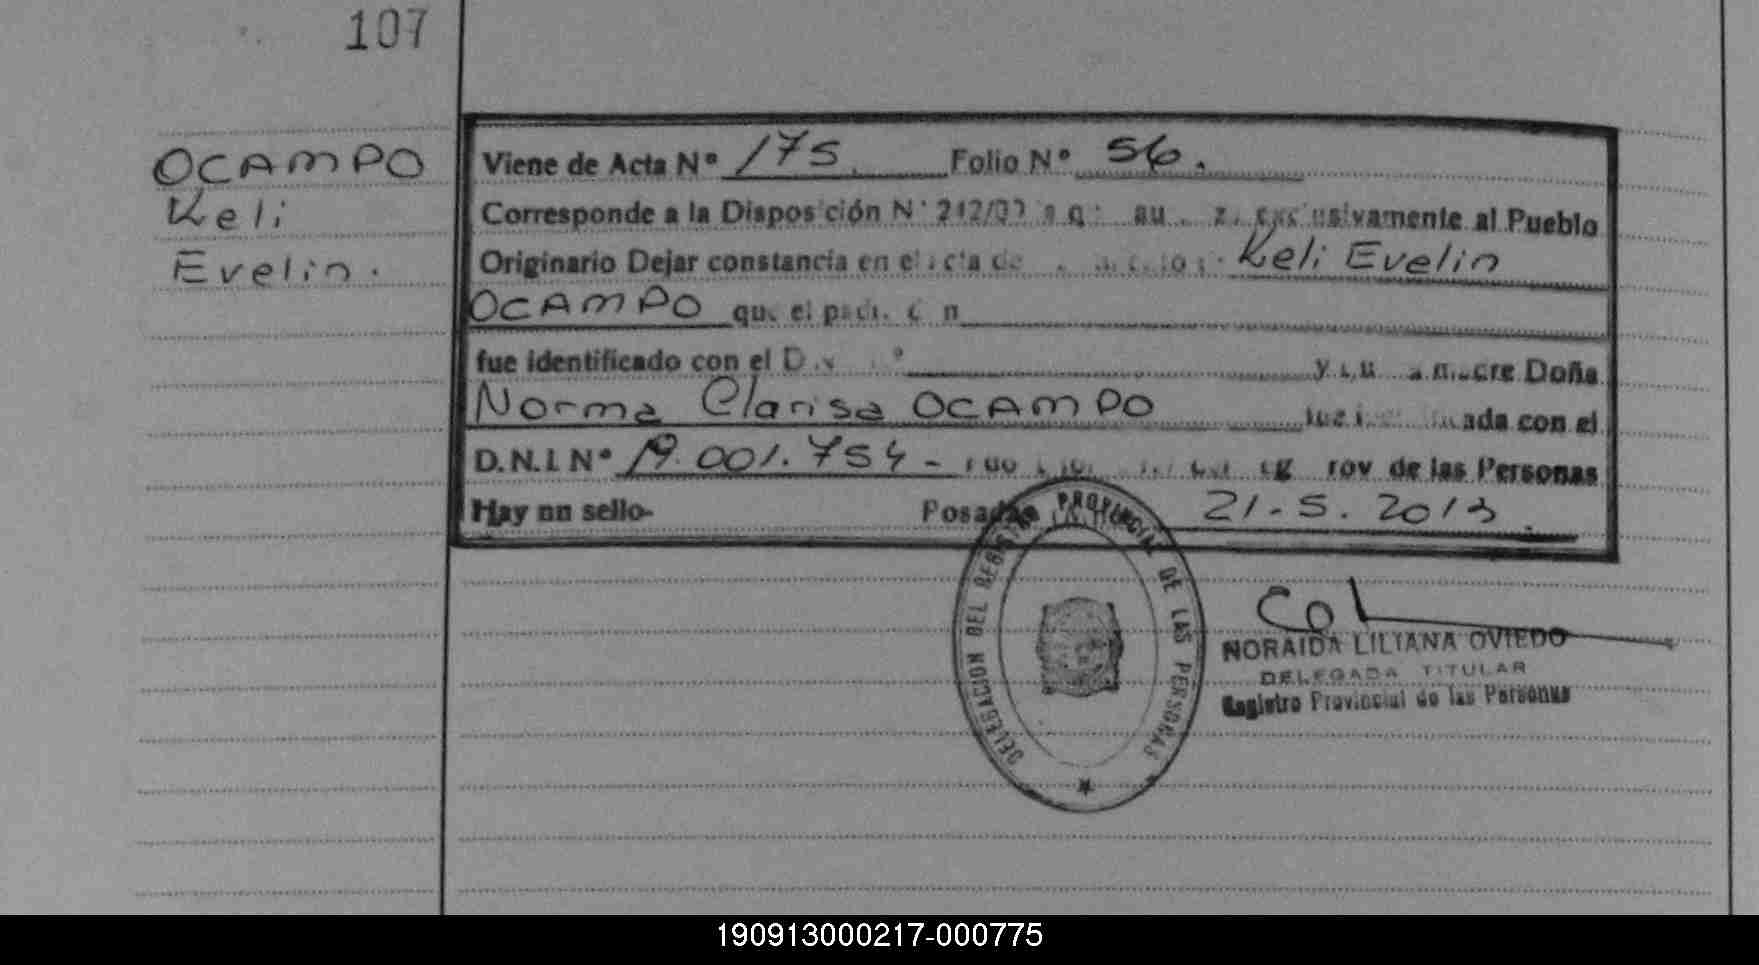 107
OCAMPO
Keli
Evelin.
Viene de Acta Nº 175. Folio Nº 56.
Corresponde a la Disposición Nº 242/ exclusivamente al Pueblo
Originario Dejar constancia en el acta de Keli Evelin
OCAMPO que el
fue identificado con el Doña
Norma Clarisa OCAMPO con el
D.N.I. Nº 19.001.754 - de las Personas
Hay un sello- Posadas 21-5.2013
DELEGACION DEL REGISTRO PROVINCIAL DE LAS PERSONAS
NORAIDA LILIANA OVIEDO
DELEGADA TITULAR
Registro Provincial de las Personas
190913000217-000775